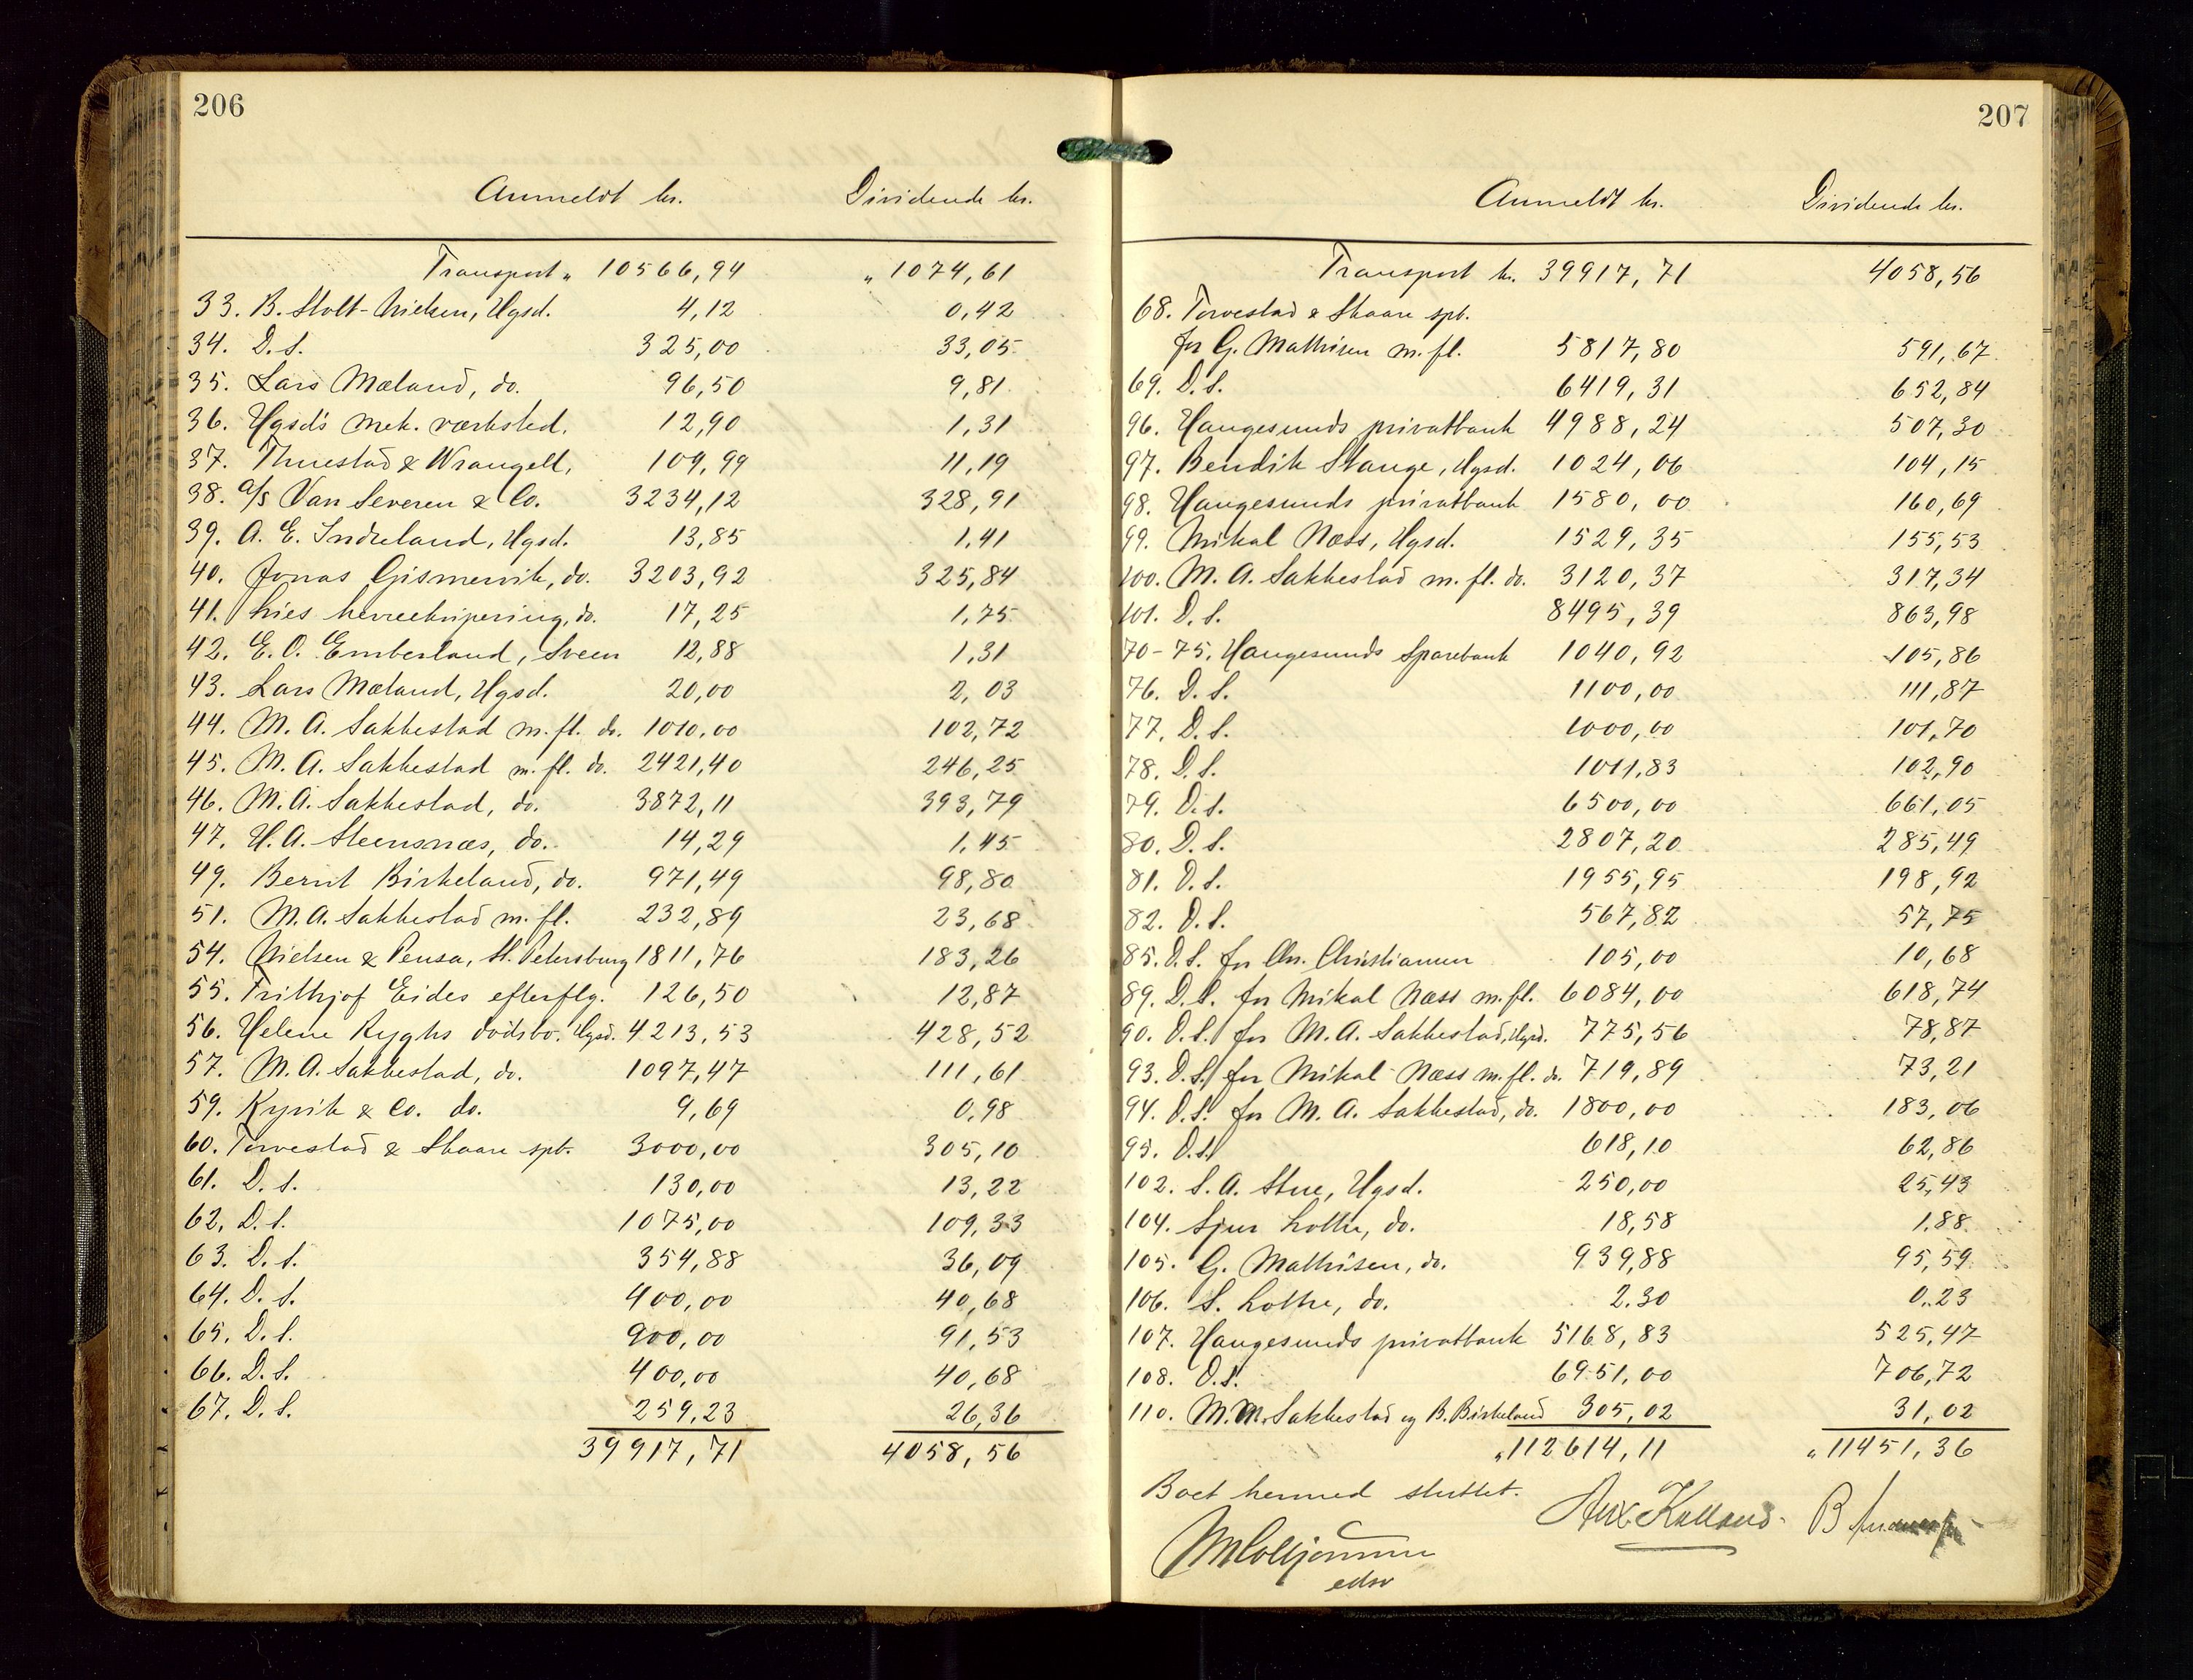 206
Anmeldt kr. Dividende kr.
Transport „ 10566,94 „ 1074,61
33. B. Stolt-Nielsen, Hgsd. 4,12 0,42
34. D. S. 325,00 33,05
35. Lars Mæland, do. 96,50 9,81
36. Hgsd's mek. værksted. 12,90 1,31
37. Thuestad & Wrangell, 109,99 11,19
38. A/S Van Severen & Co. 3234,12 328,91
39. A. E. Indreland, Hgsd. 13,85 1,41
40. Jonas Gismervik, do. 3203,92 325,84
41. Lies herreekvipering, do. 17,25 1,75
42. E. O. Emberland, Sveen 12,88 1,31
43. Lars Mæland, Hgsd. 20,00 2,03
44. M. A. Sakkestad m. fl. do. 1010,00 102,72
45. M. A. Sakkestad m. fl. do. 2421,40 246,25
46. M. A. Sakkestad, do. 3872,11 393,79
47. H. A. Steensnæs, do. 14,29 1,45
49. Bernt Birkeland, do. 971,49 98,80
51. M. A. Sakkestad m. fl. 232,89 23,68
54. Nielsen & Pensa, St. Petersburg 1811,76 183,26
55. Frithjof Eides efterflg. 126,50 12,87
56. Helene Ryghs dödsbo. Hgsd. 4213,53 428,52
57. M. A. Sakkestad, do. 1097,47 111,61
59. Kyvik & Co. do. 9,69 0,98
60. Torvestad & Skaare spb. 3000,00 305,10
61. D. S. 130,00 13,22
62. D. S. 1075,00 109,33
63. D. S. 354,88 36,09
64. D. S. 400,00 40,68
65. D. S. 900,00 91,53
66. D. S. 400,00 40,68
67. D. S. 259,23 26,36
39917,71 4058,56
207
Anmeldt kr. Dividende kr.
Transport kr. 39917,71 4058,56
68. Torvestad & Skaare spb.
for G. Mathisen m. fl. 5817,80 591,67
69. D. S. 6419,31 652,84
96. Haugesunds privatbank 4988,24 507,30
97. Bendik Stange, Hgsd. 1024,06 104,15
98. Haugesunds privatbank 1580,00 160,69
99. Mikal Næss, Hgsd. 1529,35 155,53
100. M. A. Sakkestad m. fl. do. 3120,37 317,34
101. D. S. 8495,39 863,98
70-75. Haugesunds Sparebank 1040,92 105,86
76. D. S. 1100,00 111,87
77. D. S. 1000,00 101,70
78. D. S. 1011,83 102,90
79. D. S. 6500,00 661,05
80. D. S. 2807,20 285,49
81. D. S. 1955,95 198,92
82. D. S. 567,82 57,75
85. D. S. for Chr. Christiansen 105,00 10,68
89. D. S. for Mikal Næss m. fl. 6084,00 618,74
90. D. S. for M. A. Sakkestad, Hgsd. 775,56 78,87
93. D. S. for Mikal Næss m. fl. do. 719,89 73,21
94. D. S. for M. A. Sakkestad, do. 1800,00 183,06
95. D. S. 618,10 62,86
102. S. A. Stue, Hgsd. 250,00 25,43
104. Sjur Lothe, do. 18,58 1,88
105. G. Mathisen, do. 939,88 95,59
106. S. Lothe, do. 2.30 0.23
107. Haugesunds privatbank 5168,83 525,47
108. D. S. 6951,00 706,72
110. M. M. Sakkestad og B. Birkeland 305,02 31,02
„ 112614,11 „ 11451,36
Boet hermed sluttet.
Kalland B